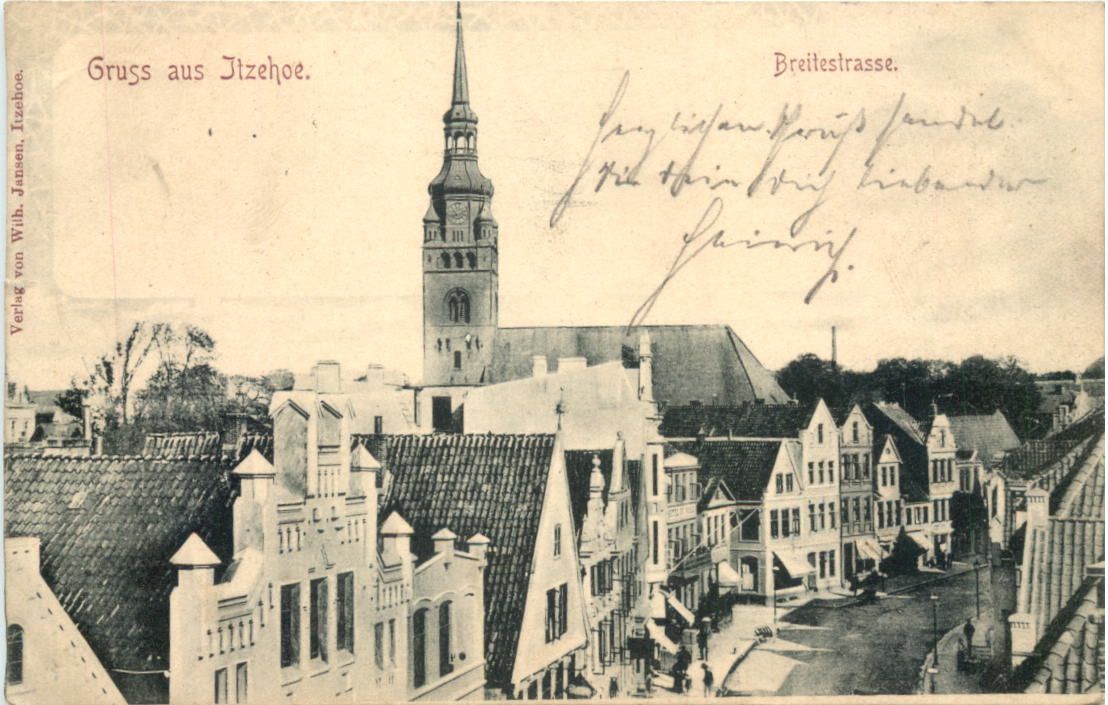 Gruss aus Itzehoe.
Breitestrasse.
Herzlichen Gruß sendet
Dir Dein Dich liebender
Heinrich.
Verlag von Wilh. Jansen, Itzehoe.